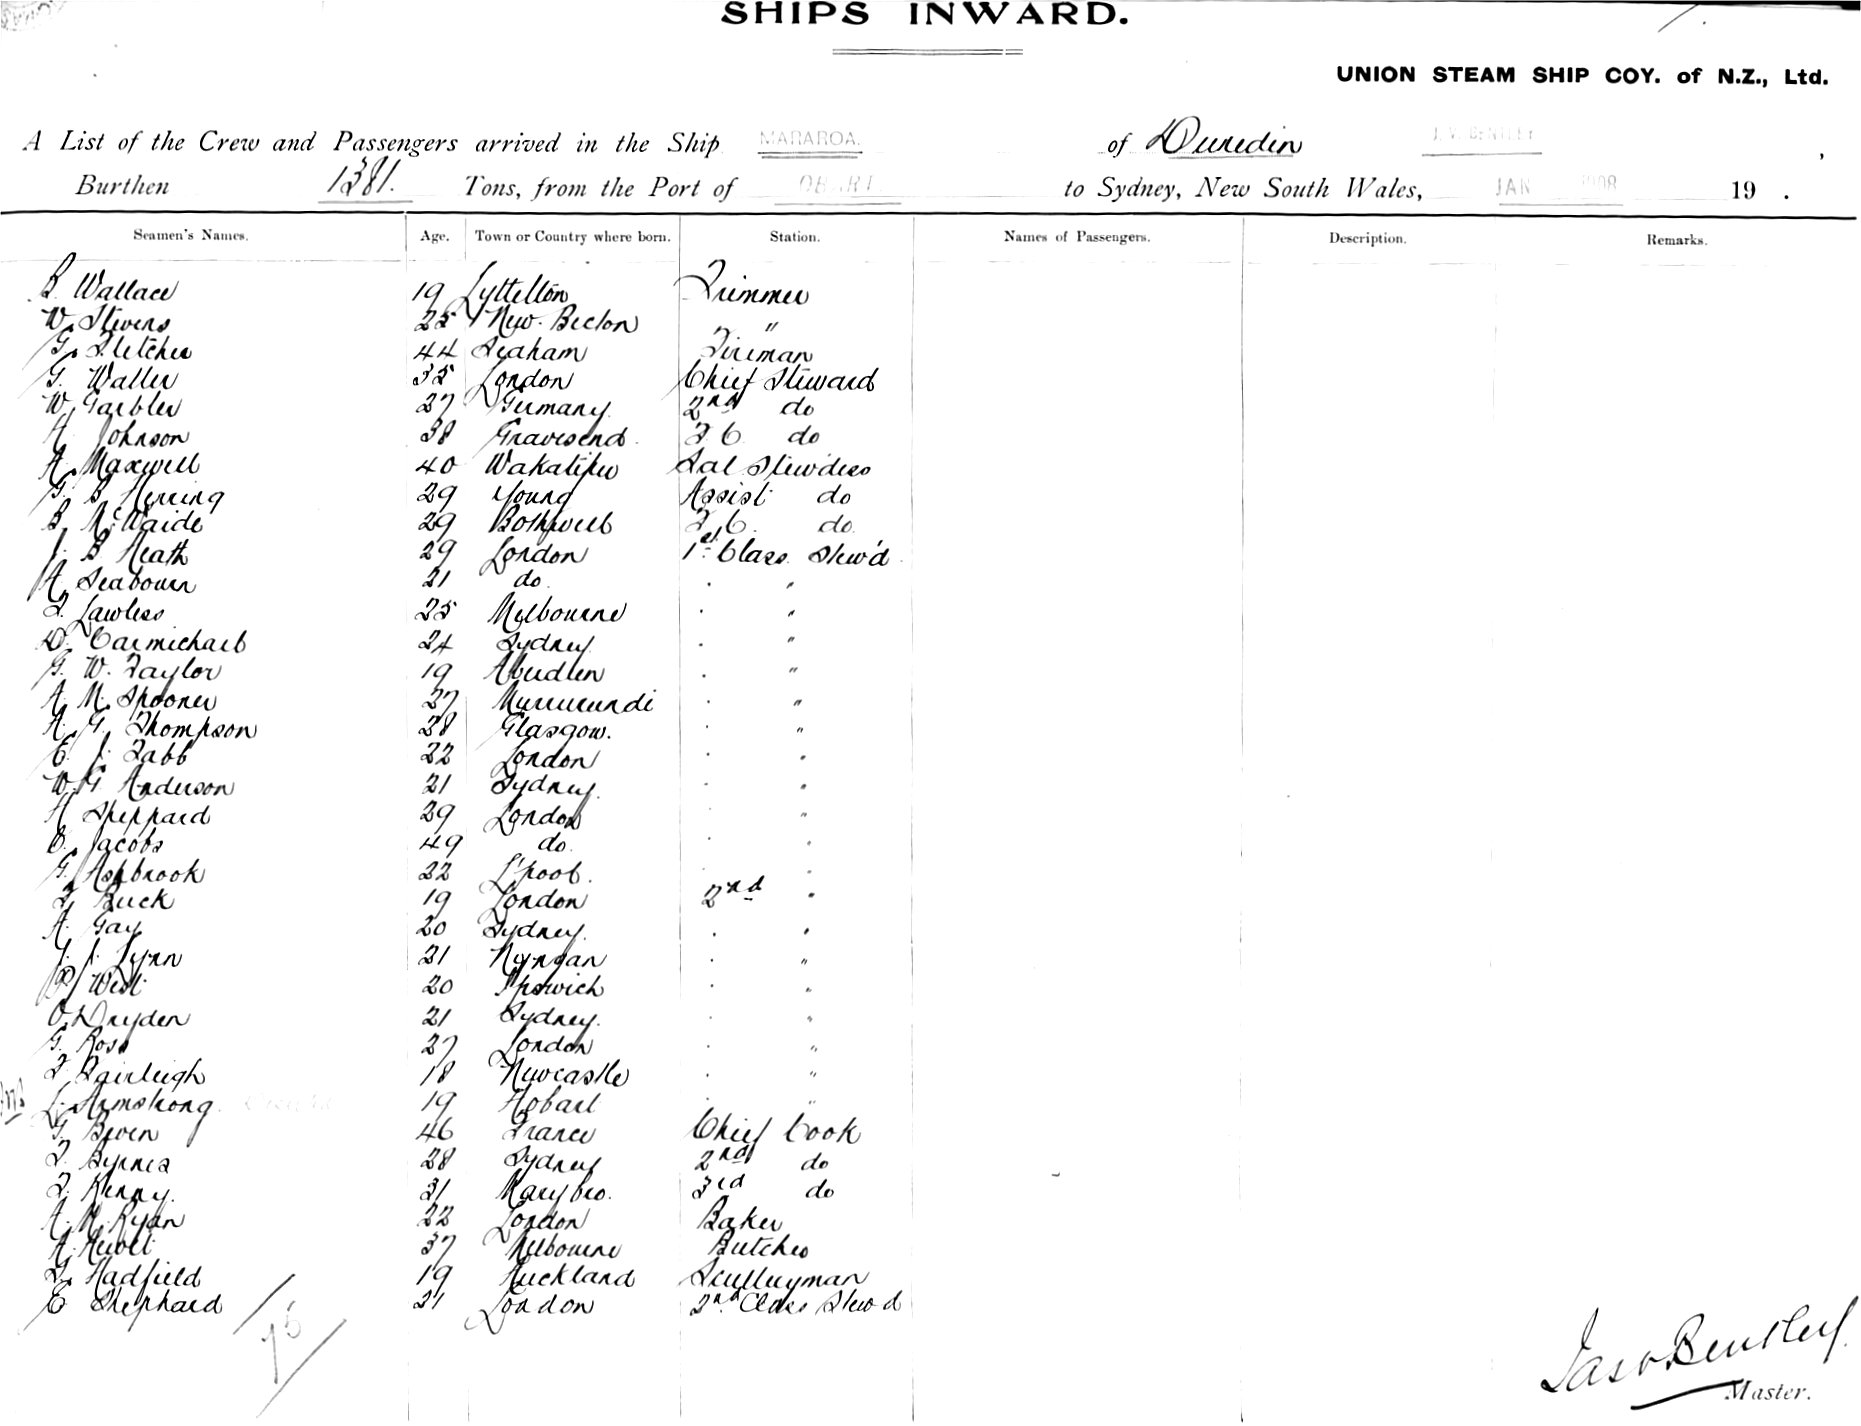 SHIPS INWARD.
UNION STEAM SHIP COY. of N.Z., Ltd.
A List of the Crew and Passengers arrived in the Ship MARAROA. of Dunedin J. W. BENTLEY,
Burthen 1381. Tons, from the Port of OBART to Sydney, New South Wales, JAN 1908 19 .
Seamen's Names. Age. Town or Country where born. Station. Names of Passengers. Description. Remarks.
B. Wallace 19 Lyttelton Trimmer
W. Stevens 25 New. Becton "
G. Fletcher 44 Seaham Fireman
G. Waller 35 London Chief Steward
W. Garbler 27 Germany. 2nd do
A. Johnson 38 Gravesend. F. C. do
A. Maxwell 40 Wakatipu Sal Stew'dess
G. B. Herring 29 Young Assist do
B. McWaide 29 Bothwell F. C. do.
J. B. Heath 29 London 1st Class Stew'd
A. Seabourn 21 do. "
F. Lawless 25 Melbourne "
D. Carmichael 24 Sydney. "
G. W. Taylor 19 Aberdeen "
A. M. Spooner 27 Murrurundi "
A. G. Thompson 28 Glasgow. "
E. J. Tabb 22 London "
W. G. Anderson 21 Sydney. "
H. Sheppard 29 London "
C. Jacobs 49 do. "
G. Ashbrook 22 L'pool. "
F. Buck 19 London 2nd "
A. Gay 20 Sydney. "
J. J. Lynn 21 Nyngan "
West 20 Ipswich "
O. Dryden 21 Sydney. "
G. Ross 27 London "
F. Fairleigh 18 Newcastle "
L. Armstrong. 19 Hobart "
G. Biven 46 France Chief Cook
F. Byrnes 28 Sydney 2nd do
F. Kenny. 31 Marybro. 3rd do
A. M. Ryan 22 London Baker
A. Hewett 37 Melbourne Butcher
G. Hadfield 19 Auckland Sculleryman
E. Shephard 21 London 2nd Class Stew'd
75
Jas W Bentley
Master.